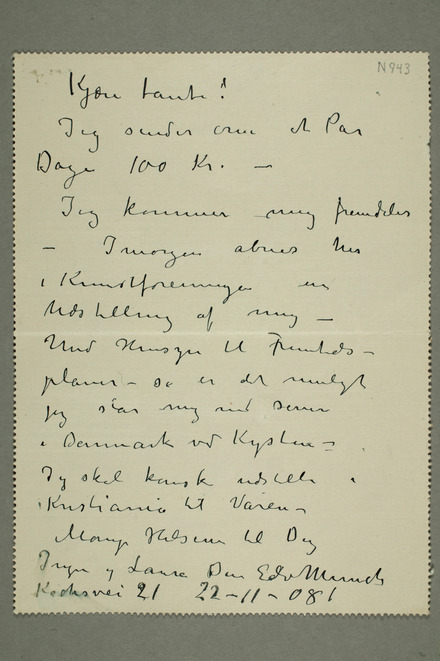 N 943
Kjære tante!
Jeg sender om et Par
Dage 100 Kr. —
Jeg kommer mig fremdeles
— Imorgen åbnes her
i Kunstforeningen en
Udstilling af mig —
Med Hensyn til Fremtids-
planer — så er det muligt
jeg slår mig ned senere
i Danmark ved Kysten —
Jeg skal kanske udstille i
Kristiania til Våren —
Mange Hilsener til Dig
Inger og Laura Din Edv Munch
Kochsvei 21 22-11-08